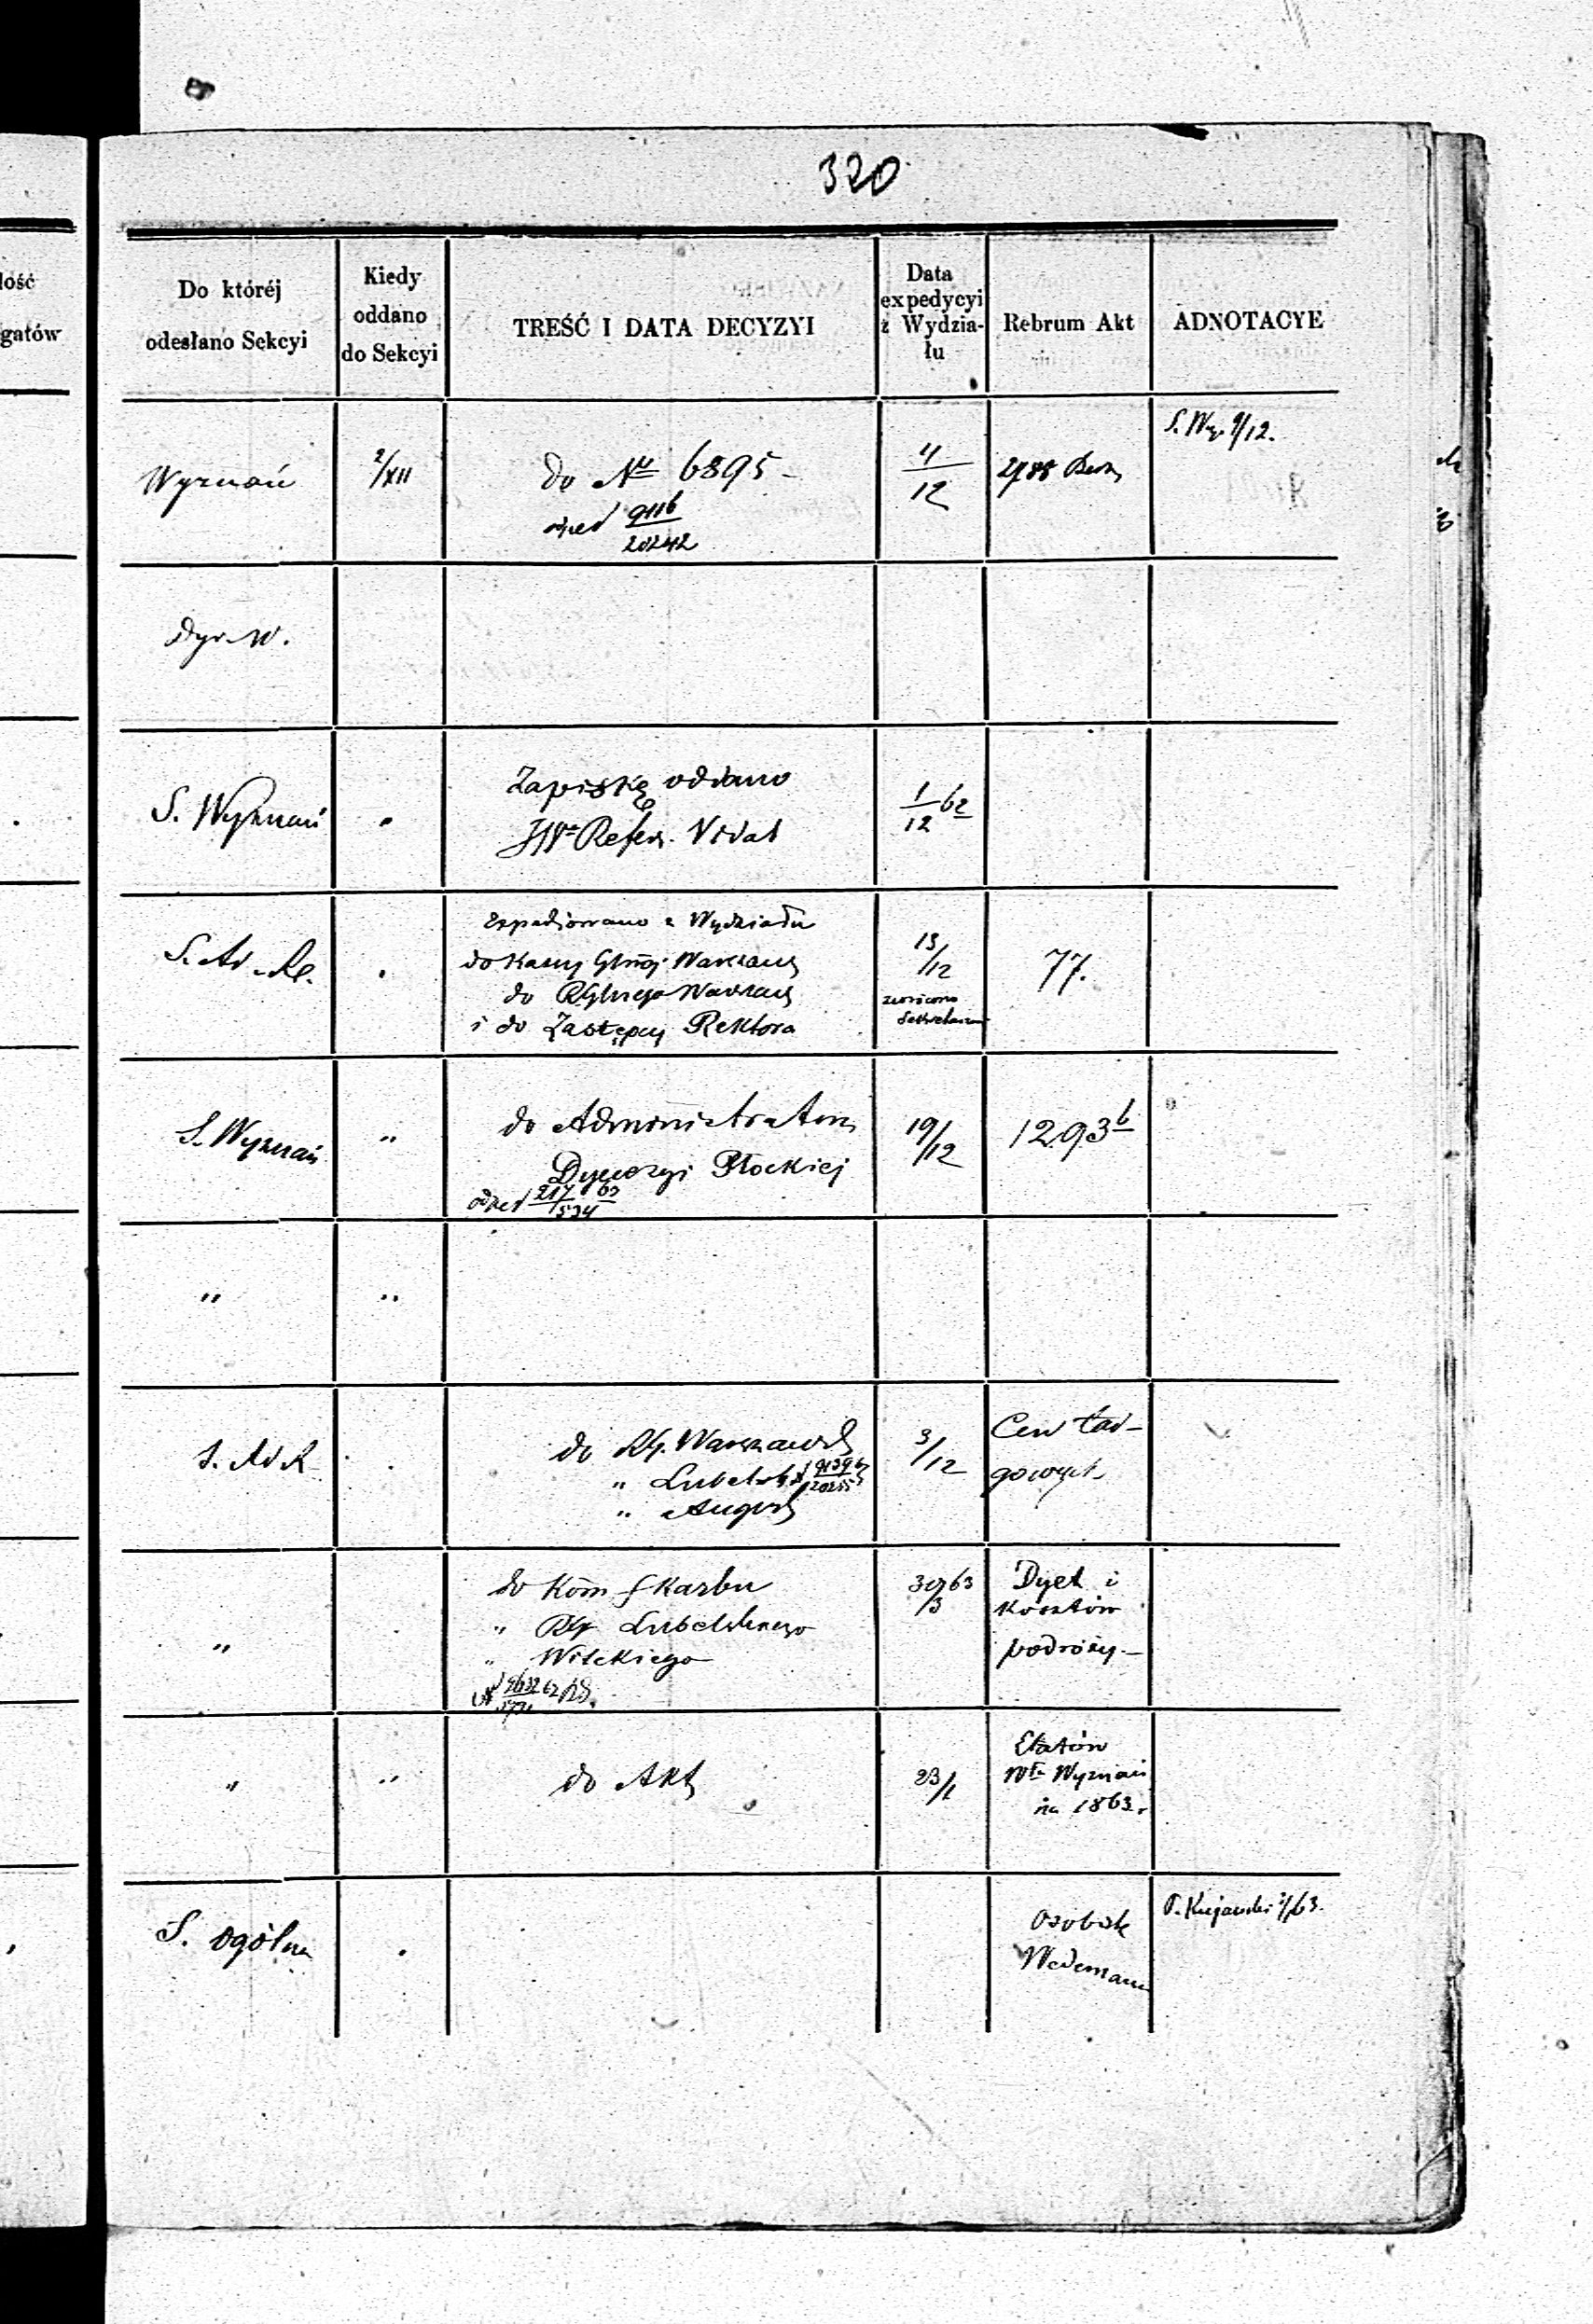 320
lość
gatów
Do któréj
odesłano Sekcyi
Kiedy
oddano
do Sekcyi
TREŚĆ I DATA DECYZYI
Data
expedycyi
z Wydzia-
łu
Rebrum Akt
ADNOTACYE
Wyznań
2/XII
do Nu 6895 -
odped 9116
20242
4
12
2988
S. Wyz. 9/12.
Dyr. W.
S. Wyznań
Zapiskę oddano
JWu Refer. Vidal
1
12 62
S. Ad. Re.
Expedjowano z Wydziału
do Kassy Głnej Warszaws
do RGlnego Warszaws
i do Zastępcy Rektora
13/12
zwrócono
Sekretarzowi
77.
S. Wyznań
"
do Administratora
Dyecezyi Płockiej
odped 217 63
534
19/12
1293 b
"
"
S. Ad. R
do RG. Warszawsk
" Lubelsk 9139
20255
" Augus
3/12
Cen tar-
gowych
"
do Kom Skarbu
" RG Lubelskiego
" Witskiego
30 63
/3
Dyet i
kosztów
podróży. -
"
"
do Akt
23/1
Etatów
Wła Wyznań
na 1863.
S. ogólna
Osobiste
Wedeman
P. Kujawski 2/63.